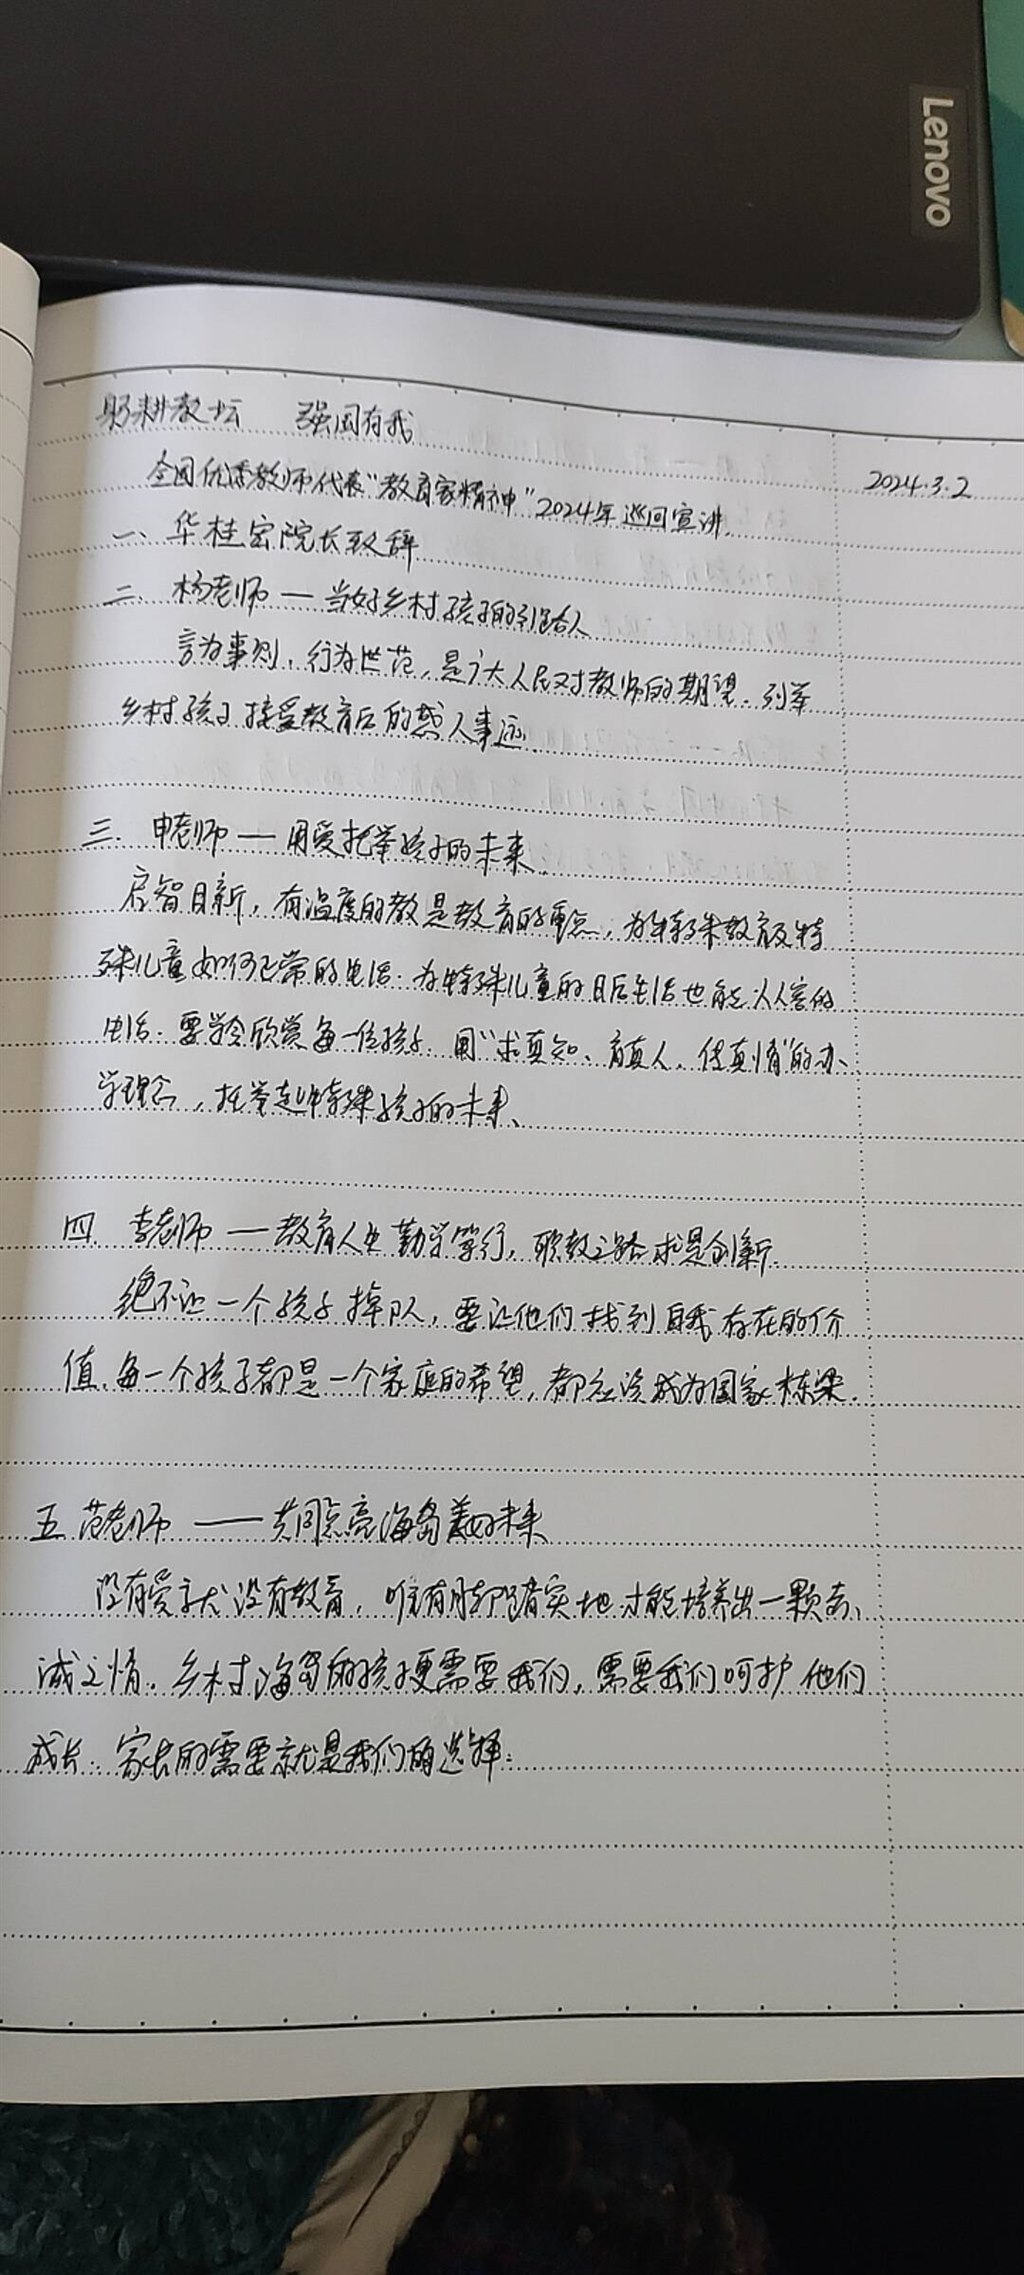 Lenovo
躬耕教坛 强国有我
2024.3.2
全国优秀教师代表"教育家精神"2024年巡回宣讲.
一、华桂宏院长致辞
二、杨老师 — 当好乡村孩子的引路人
言为事则,行为世范,是广大人民对教师的期望.列举
乡村孩子接受教育后的感人事迹.
三、申老师 — 用爱托举孩子的未来.
启智日新,有温度的教是教育的重点,为特殊教育及特
殊儿童如何正常的生活.为特殊儿童的日后生活也能从容的
生活.要学会欣赏每一位孩子.用"求真知、育真人、传真情"的办
学理念,托举起特殊孩子的未来、
四、李老师 — 教育人生勤学笃行,职教之路求是创新.
绝不让一个孩子掉队,要让他们找到自我存在的价
值.每一个孩子都是一个家庭的希望,都应该成为国家栋梁.
五.范老师 —— 共同点亮海岛美好未来
没有爱就没有教育,唯有脚踏实地才能培养出一颗赤
诚之情.乡村海岛的孩子更需要我们,需要我们呵护他们
成长.家长的需要就是我们的选择.